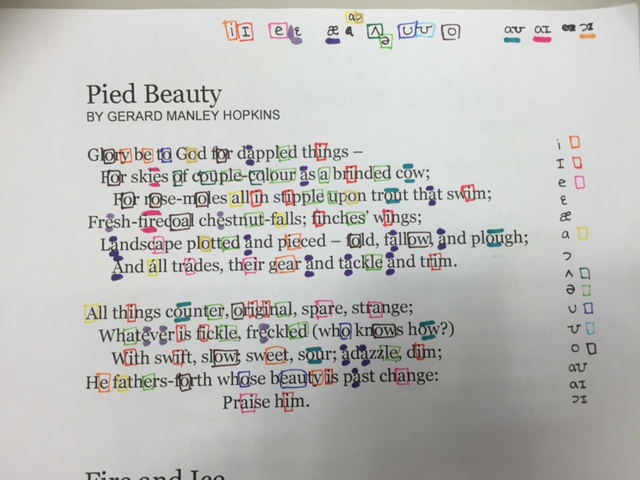 i I e ɛ æ a ʌ ə u ʊ o aʊ aɪ ɔɪ
Pied Beauty
BY GERARD MANLEY HOPKINS
Glory be to God for dappled things –
For skies of couple-colour as a brinded cow;
For rose-moles all in stipple upon trout that swim;
Fresh-firecoal chestnut-falls; finches' wings;
Landscape plotted and pieced – fold, fallow, and plough;
And all trades, their gear and tackle and trim.
All things counter, original, spare, strange;
Whatever is fickle, freckled (who knows how?)
With swift, slow; sweet, sour; adazzle, dim;
He fathers-forth whose beauty is past change:
Praise him.
i
I
e
ɛ
æ
a
ɔ
ʌ
ə
u
ʊ
o
aʊ
aɪ
ɔɪ
Fire and Ice